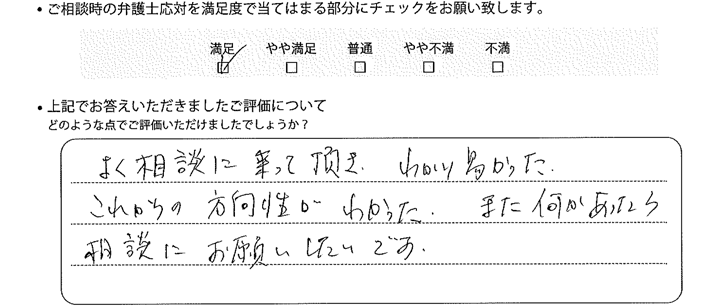 • ご相談時の弁護士応対を満足度で当てはまる部分にチェックをお願い致します。
満足 やや満足 普通 やや不満 不満
☑ □ □ □ □
• 上記でお答えいただきましたご評価について
どのような点でご評価いただけましたでしょうか？
よく相談に乗って頂き わかり易かった.
これからの方向性が わかった. また何かあったら
相談に お願いしたいです.